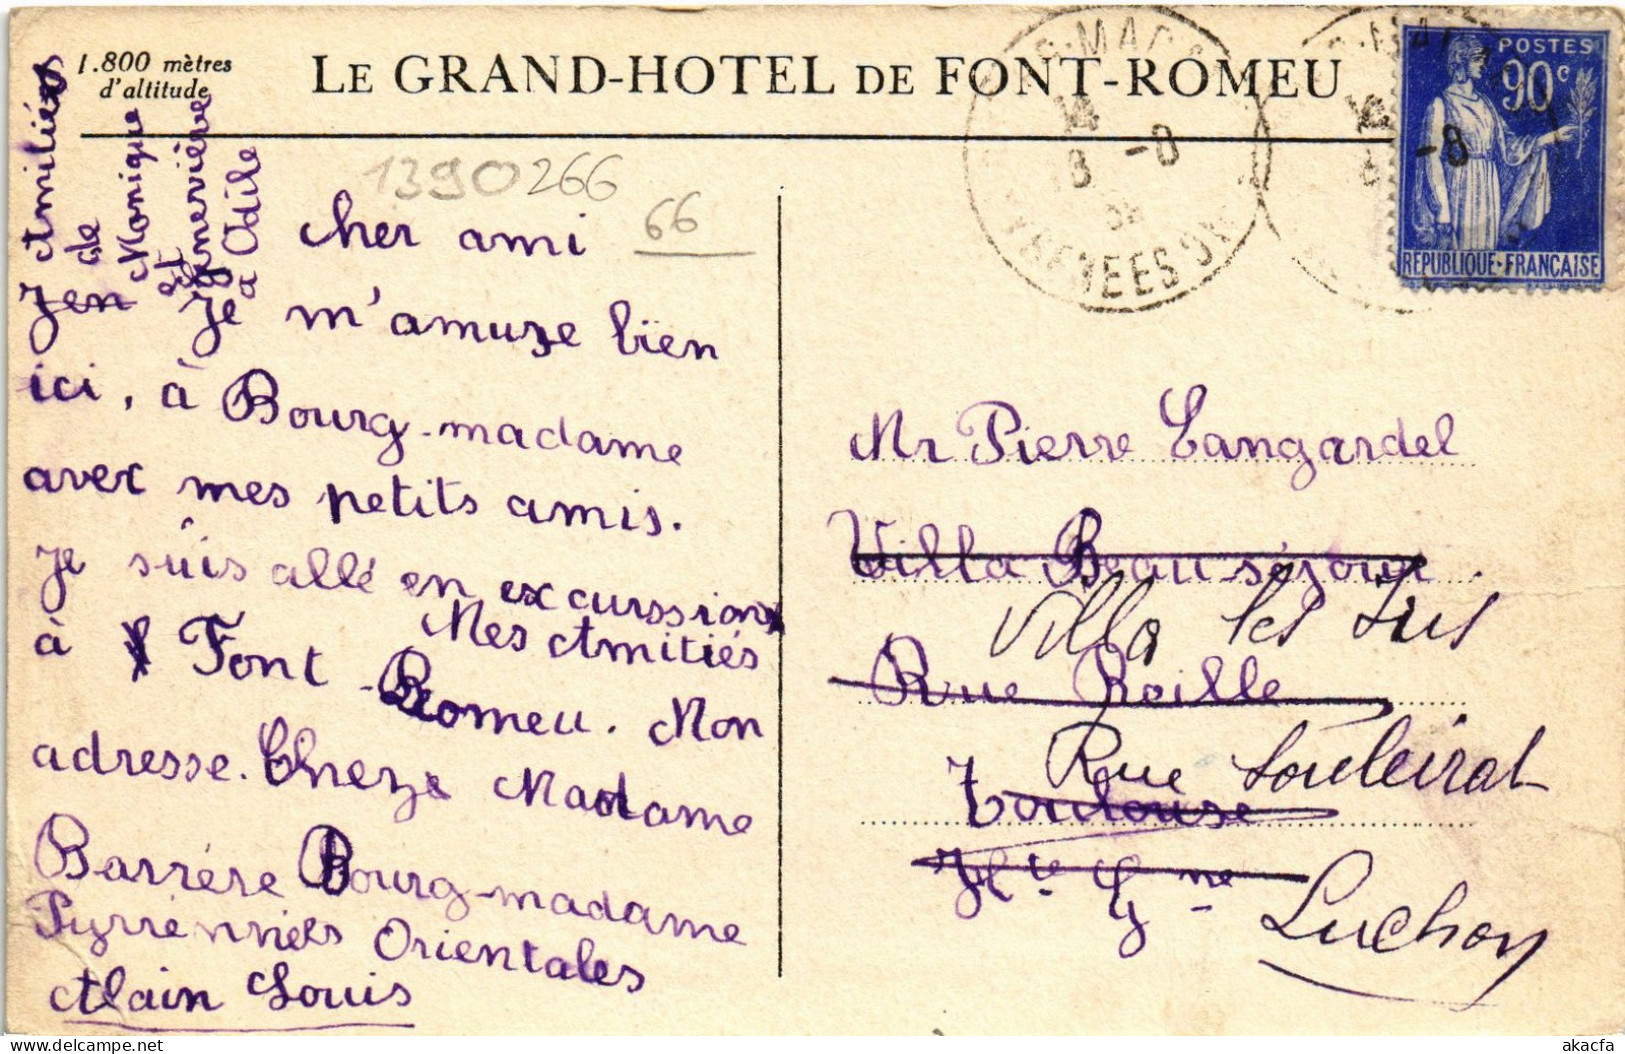 1.800 mètres
d'altitude
LE GRAND-HOTEL DE FONT-ROMEU
POSTES
90c
REPUBLIQUE·FRANCAISE
14
8 -8
38
PYRENEES ORles
-8
1390266
66
Amitiés
de
Monique
et
Genevière
a Odile
Cher ami
Jen Je m'amuse bien
ici, à Bourg-madame
avec mes petits amis.
Je suis allé en excurssion
à Font-Romeu. Mon
Mes Amitiés
adresse. Cheze Madame
Barrére Bourg-madame
Pyrrennées Orientales
Alain Louis
Mr Pierre Cangardel
Villa Beau-séjour
Villa les Iris
Rue Reille
Rue Souleirat
Toulouse
Hte Gne
Luchon
akacfa